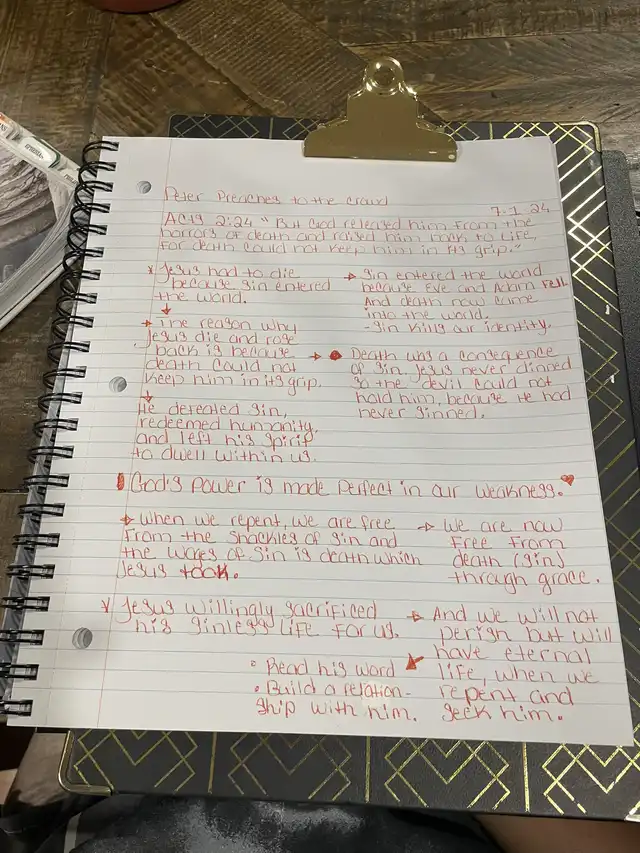 Peter Preaches to the crowd
7-1-24
Acts 2:24 "But God released him from the
horrors of death and raised him back to life,
for death could not keep him in its grip."
* Jesus had to die
because sin entered
the world.
→ Sin entered the world
because Eve and Adam fell
And death now came
into the world.
- Sin kills our identity.
→ The reason why
Jesus die and rose
back is because →
death could not
keep him in its grip.
Death was a consequence
of sin Jesus never dinned
so the devil could not
hold him, because He had
never sinned.
He defeated sin,
redeemed humanity,
and left his spirit
to dwell within us.
God's power is made perfect in our weakness.
→ When we repent, we are free
from the shackles of sin and
the wages of sin is death which
Jesus took.
→ We are now
free from
death (sin)
through grace.
* Jesus willingly sacrificed
his sinless life for us.
→ And we will not
perish but will
have eternal
life, when we
repent and
seek him.
• Read his word
• Build a relation-
ship with him.